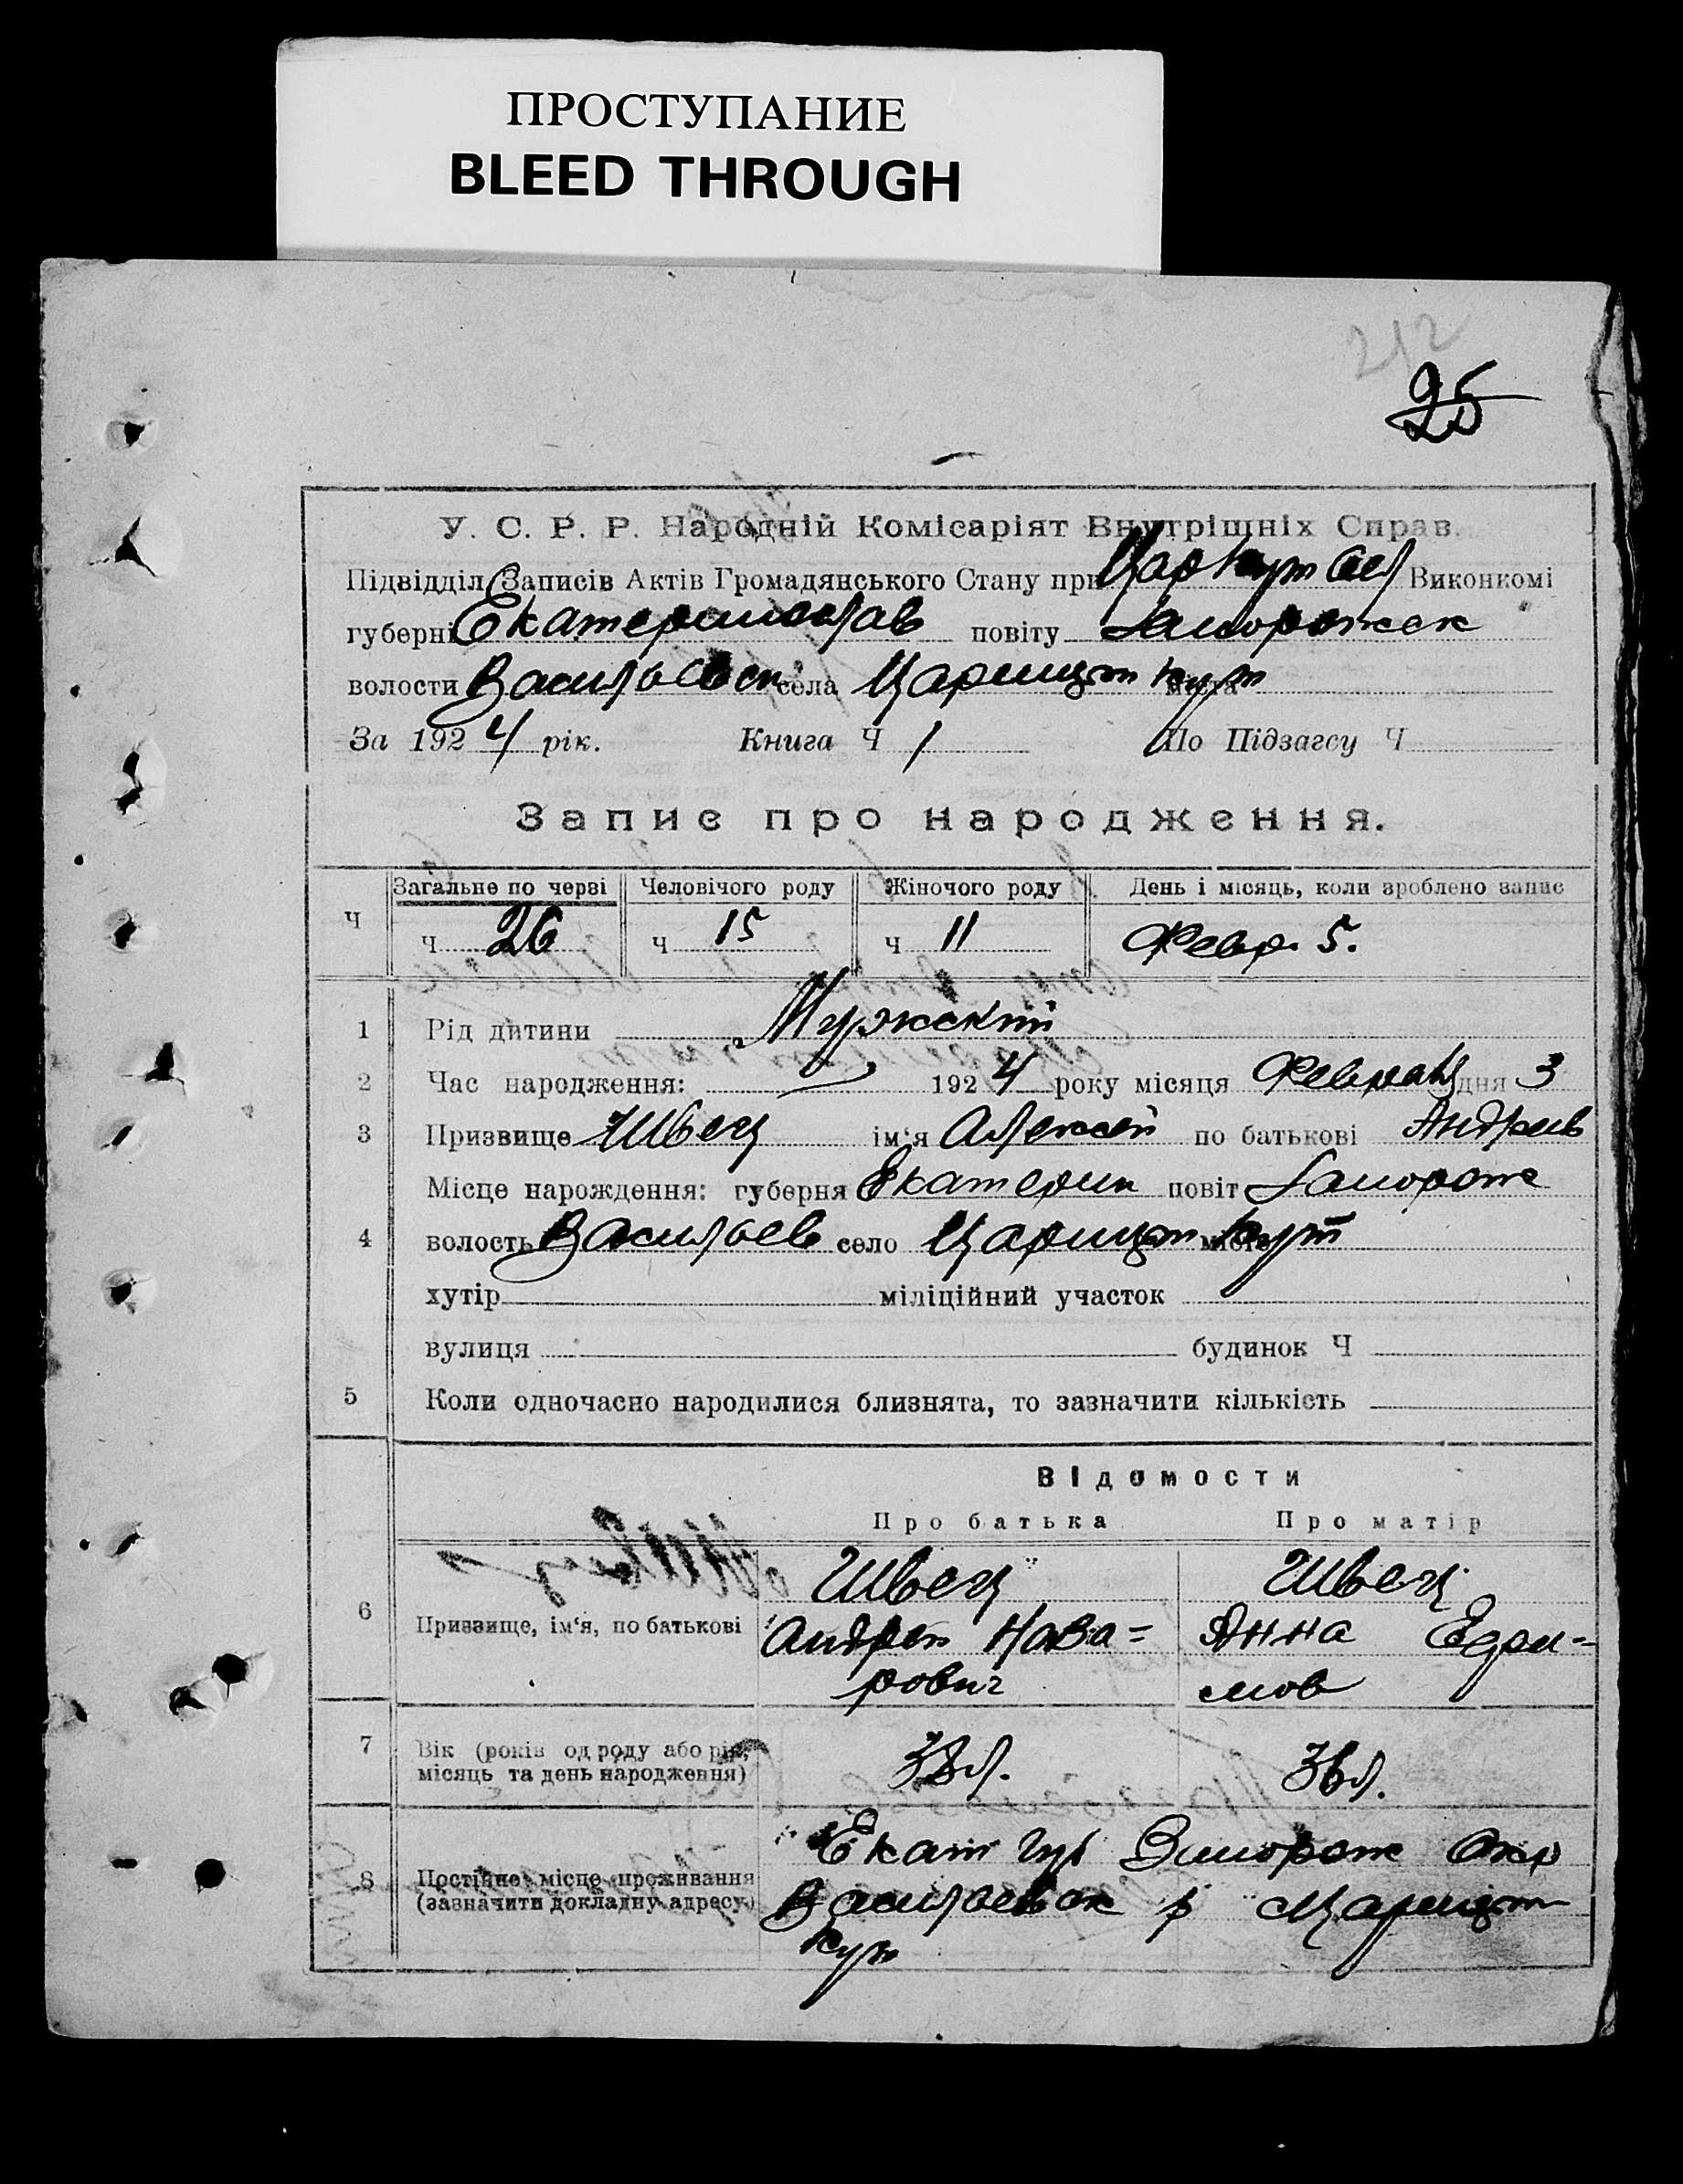 ПРОСТУПАНИЕ
BLEED THROUGH
212
25
У. С. Р. Р. Народній Комісаріят Внутрішніх Справ.
Підвідділ Записів Актів Громадянського Стану при ЦарКут сел Виконкомі
губерні Екатеринослав повіту Запорожск
волости Васильевск села Царицын Кут міста
За 1924 рік. Книга Ч 1 По Підзагсу Ч
Запис про народження.
Ч Загальне по черві Человічого роду Жіночого роду День і місяць, коли зроблено запис
Ч 26 Ч 15 Ч 11 Февр. 5.
1 Рід дитини Мужской
2 Час народження: 1924 року місяця Февраля дня 3
3 Призвище Швец ім‘я Алексей по батькові Андреев
Місце нарождення: губерня Екатерин повіт Запорож
4 волость Васильев село Царицын Кут місто
хутір міліційний участок
вулиця будинок Ч
5 Коли одночасно народилися близнята, то зазначити кількість
Відомости
Про батька Про матір
Швец Швец
6 Призвище, ім‘я, по батькові Андрей Наза= Анна Ефи=
рович мов
7 Вік (років од роду або рік, 38 л. 36 л.
місяць та день народження)
Екат губ Запорож Окр
8 Постійне місце проживання
(зазначити докладну адресу) Васильевск р Царицын
Кут